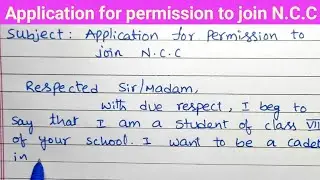 Application for permission to join N.C.C
Subject: Application for Permission to
join N.C.C
Respected Sir/Madam,
With due respect, I beg to
say that I am a student of class VIII
of your school. I want to be a cadet
in